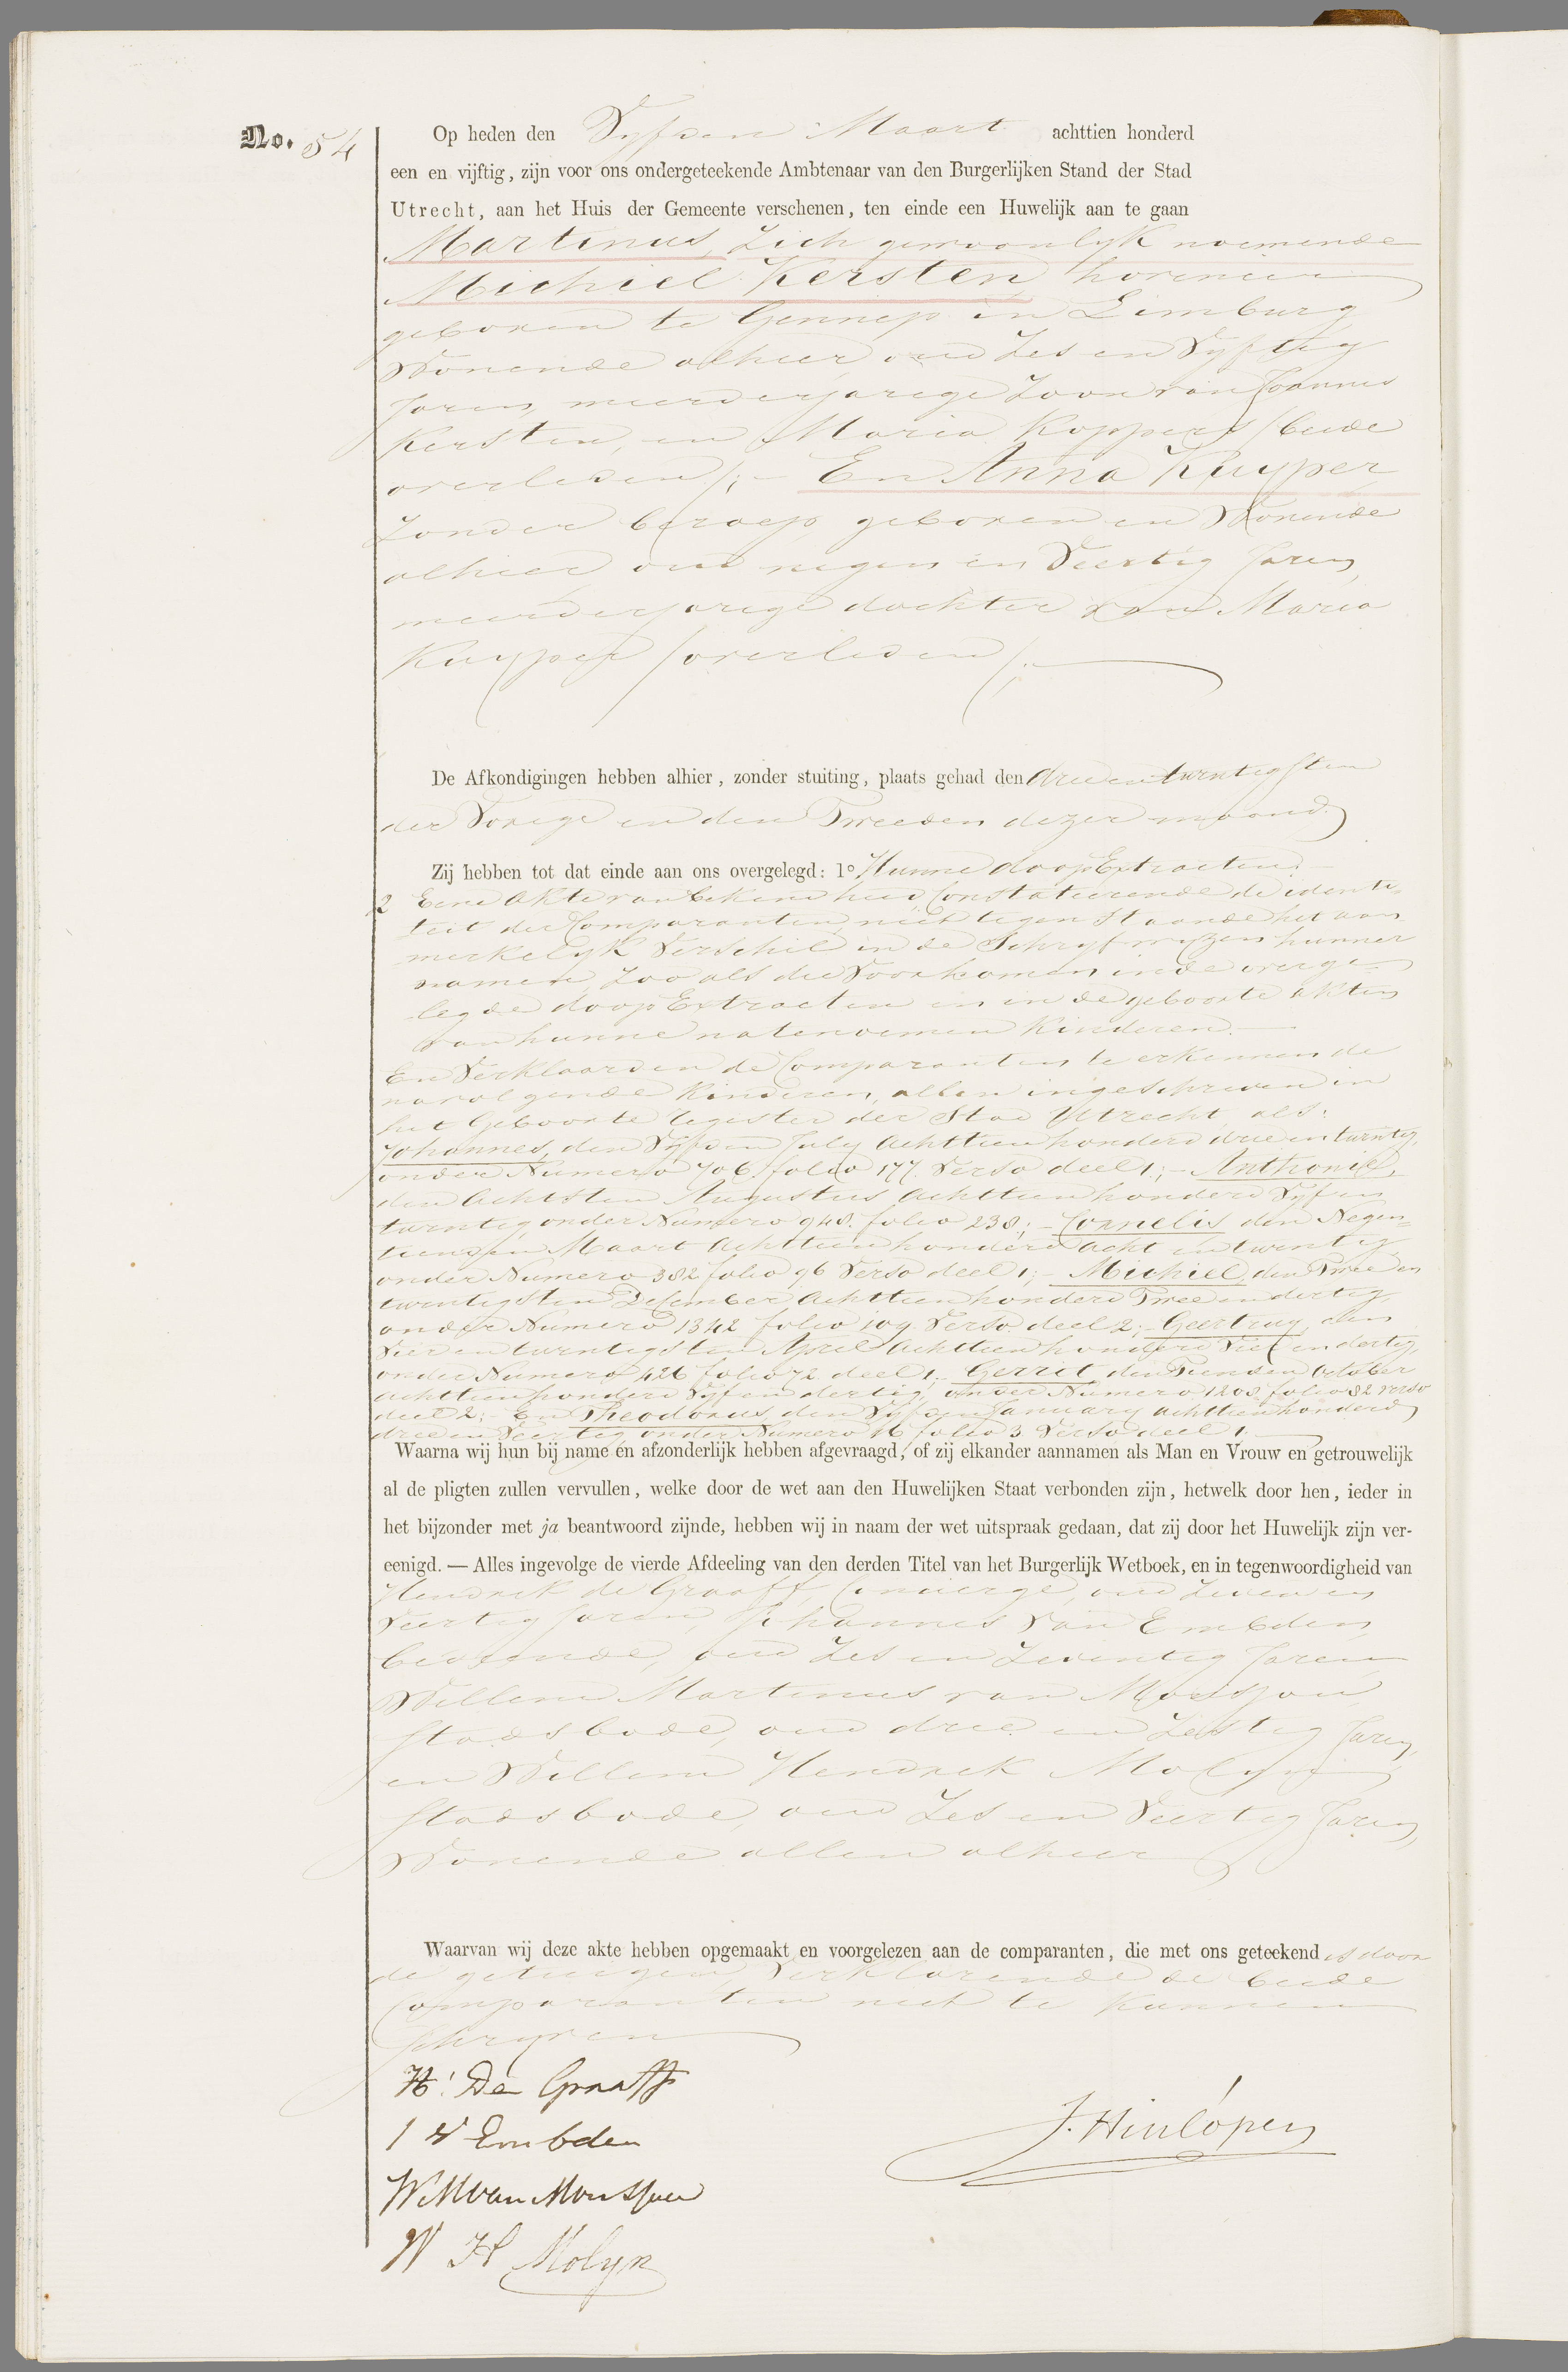 No. 54
Op heden den Vyfden Maart achttien honderd
een en vijftig, zijn voor ons ondergeteekende Ambtenaar van den Burgerlijken Stand der Stad
Utrecht, aan het Huis der Gemeente verschenen, ten einde een Huwelijk aan te gaan
Martinus, zich gewoonlyk noemende
Michiel Kersten, hovenier
geboren te Gennep in Limburg
Wonende alhier, oud Zes en Vyftig
Jaren, meerderjarige Zoon van Joannes
Kersten, en Maria Koppers /beide
overleden/; - En Anna Kuyper,
Zonder beroep, geboren en Wonende
alhier, oud negen en Veertig Jaren,
meerderjarige dochter van Maria
Kuyper /overleden/.
De Afkondigingen hebben alhier, zonder stuiting, plaats gehad den drie en twintigsten
der Vorige en den Tweeden dezer maand.
Zij hebben tot dat einde aan ons overgelegd: 1o Hunne doop Extracten.
2 Eene Akte van bekendheid Constateerende de identi-
teit der Comparanten, niet tegenstaande het aan
merkelyk Verschil in de Schryfwyzen hunner
namen, zoo als die Voorkomen in de overge-
legde doop Extracten en in de geboorte akten
van hunne natenoemen Kinderen.
En Verklaarden de Comparanten te erkennen de
navolgende Kinderen, allen ingeschreven in
het Geboorte Register der Stad Utrecht, als:
Johannes, den Vyfden July Achttienhonderd drie en twintig,
onder Numero 706. folio 177. Verso deel 1; - Anthonie,
den Achtsten Augustus Achttienhonderd Vyf en
twintig, onder Numero 948. folio 238; - Cornelis, den Negen-
tienden Maart Achttienhonderd acht en twintig
onder Numero 382 folio 96 Verso deel 1; - Michiel, den Twee en
twintigsten December Achttienhonderd Twee en dertig
onder Numero 1342 folio 109 Verso deel 2; - Geertruy, den
Vier en twintigsten April Achttienhonderd Vier en dertig,
onder Numero 426 folio 72 deel 1; Gerrit, den Tienden October
achttienhonderd Vyf en dertig, onder Numero 1208 folio 82 verso
deel 2; - En Theodorus, den Vyfden January achttienhonderd
drie en Veertig onder Numero 16 folio 3 Verso deel 1.
Waarna wij hun bij name en afzonderlijk hebben afgevraagd, of zij elkander aannamen als Man en Vrouw en getrouwelijk
al de pligten zullen vervullen, welke door de wet aan den Huwelijken Staat verbonden zijn, hetwelk door hen, ieder in
het bijzonder met ja beantwoord zijnde, hebben wij in naam der wet uitspraak gedaan, dat zij door het Huwelijk zijn ver-
eenigd. — Alles ingevolge de vierde Afdeeling van den derden Titel van het Burgerlijk Wetboek, en in tegenwoordigheid van
Hendrik de Graaff, Concierge, oud Zeven en
Veertig Jaren, Johannes van Embden,
bediende, oud Zes en Zeventig Jaren,
Willem Martinus van Mousjou
Stadsbode, oud drie en Zestig Jaren,
en Willem Hendrik Molyn
Stadsbode, oud Zes en Veertig Jaren,
Wonende allen alhier
Waarvan wij deze akte hebben opgemaakt en voorgelezen aan de comparanten, die met ons geteekend is door
de getuigen, Verklarende de beide
Comparanten niet te Kunnen
Schryven
H. De Graaff
J V Embden
J. Hinlópen
W M van Mousjou
W H Molyn